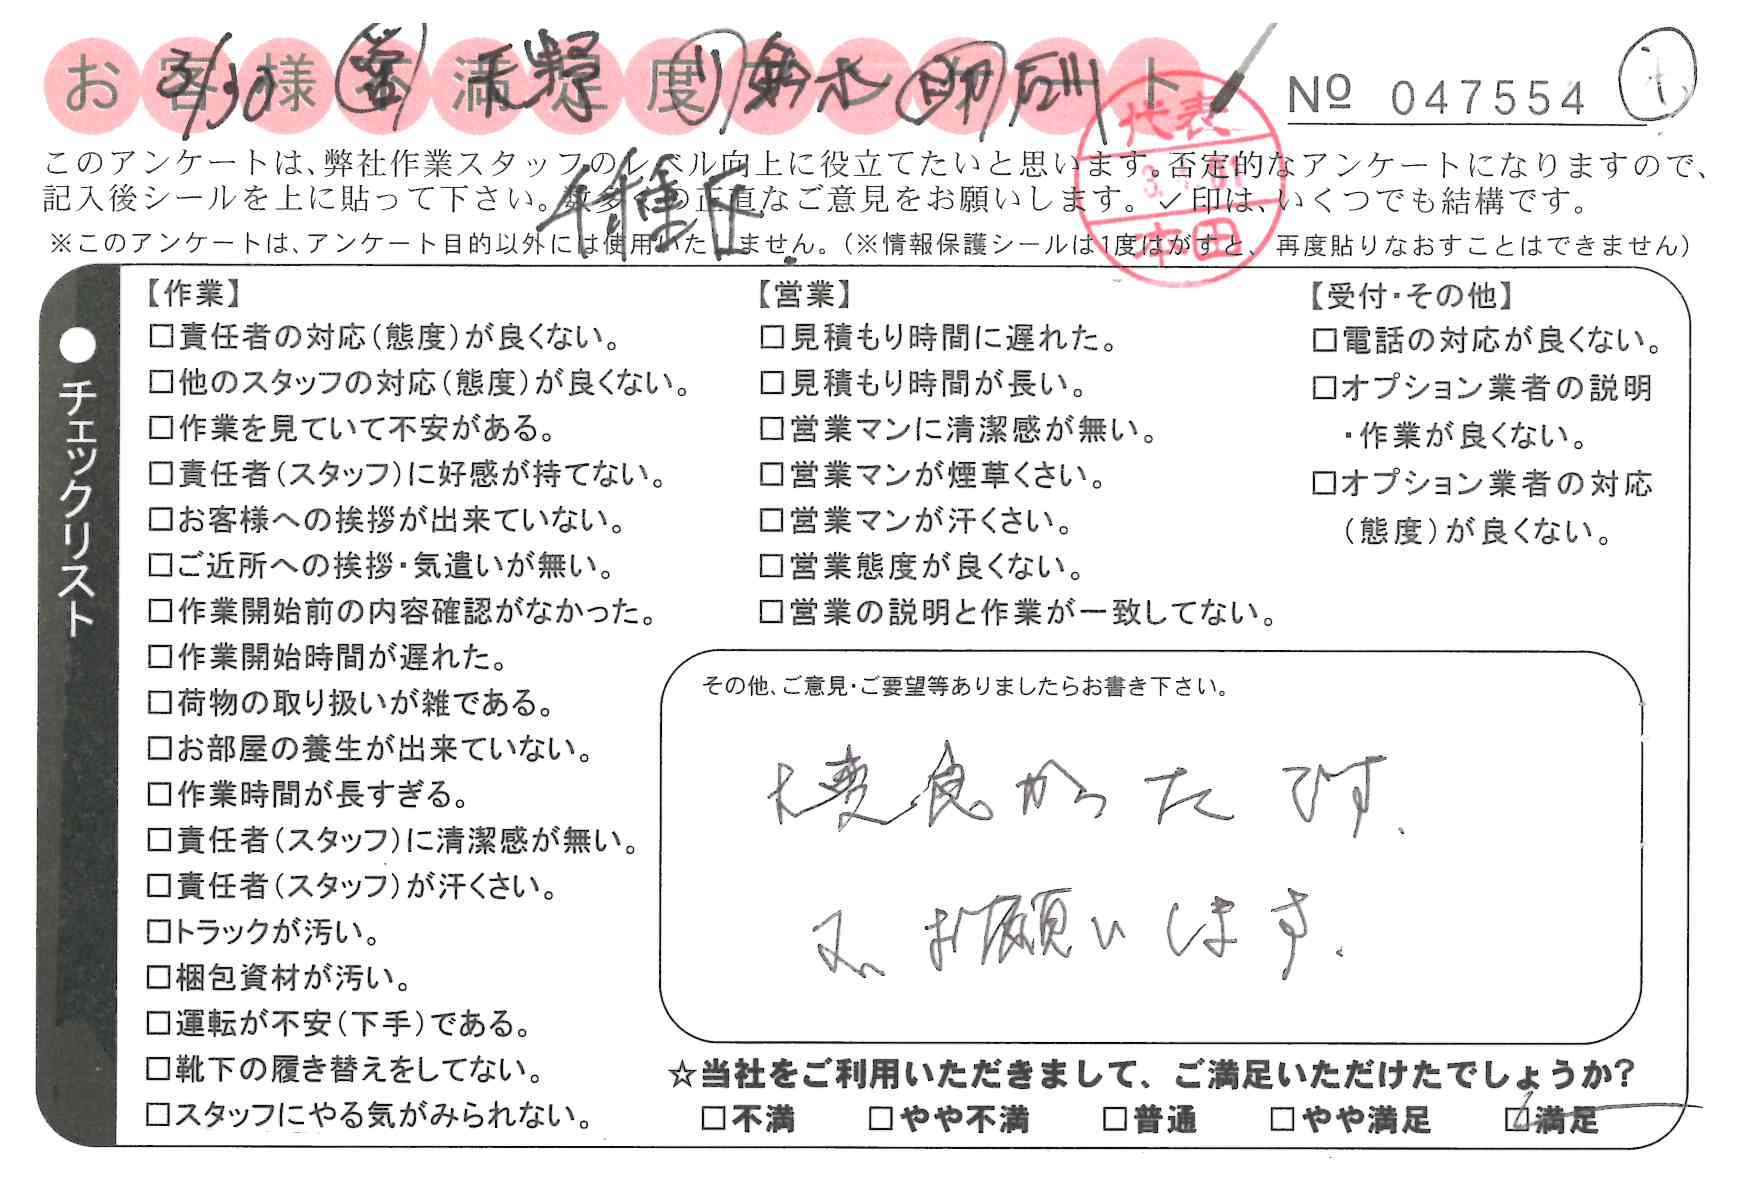 お客様不満足度アンケート
3/30 営 天野 リ 鈴木
No 047554
代表
本田
千種区
このアンケートは、弊社作業スタッフのレベル向上に役立てたいと思います。否定的なアンケートになりますので、
記入後シールを上に貼って下さい。数多くの正直なご意見をお願いします。✓印は、いくつでも結構です。
※このアンケートは、アンケート目的以外には使用いたしません。(※情報保護シールは1度はがすと、再度貼りなおすことはできません)
●チェックリスト
【作業】
□責任者の対応(態度)が良くない。
□他のスタッフの対応(態度)が良くない。
□作業を見ていて不安がある。
□責任者(スタッフ)に好感が持てない。
□お客様への挨拶が出来ていない。
□ご近所への挨拶・気遣いが無い。
□作業開始前の内容確認がなかった。
□作業開始時間が遅れた。
□荷物の取り扱いが雑である。
□お部屋の養生が出来ていない。
□作業時間が長すぎる。
□責任者(スタッフ)に清潔感が無い。
□責任者(スタッフ)が汗くさい。
□トラックが汚い。
□梱包資材が汚い。
□運転が不安(下手)である。
□靴下の履き替えをしてない。
□スタッフにやる気がみられない。
【営業】
□見積もり時間に遅れた。
□見積もり時間が長い。
□営業マンに清潔感が無い。
□営業マンが煙草くさい。
□営業マンが汗くさい。
□営業態度が良くない。
□営業の説明と作業が一致してない。
【受付・その他】
□電話の対応が良くない。
□オプション業者の説明
・作業が良くない。
□オプション業者の対応
(態度)が良くない。
その他、ご意見・ご要望等ありましたらお書き下さい。
大変良かったです.
又お願いします.
☆当社をご利用いただきまして、ご満足いただけたでしょうか?
□不満 □やや不満 □普通 □やや満足 ☑満足